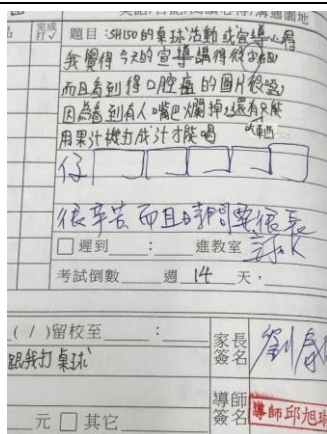 完成打✓
題目：SH150的桌球活動或宣導心得
我覺得今天的宣導講得很
而且看到得口腔癌的圖片很
因為看到有人嘴巴爛掉還有只能
用果汁機打成汁才能喝
吃東西
很辛苦 而且時間要很長
□遲到 ： 進教室
考試倒數 週 14 天，
( / )留校至 ：
家長簽名 劉
跟我打桌球
導師簽名 導師邱旭
元 □其它